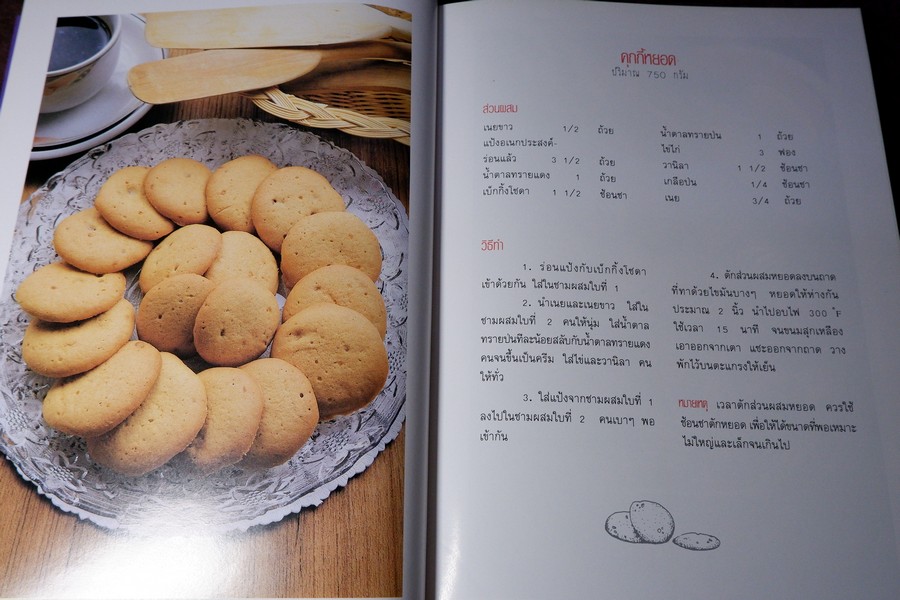 คุกกี้หยอด
ปริมาณ 750 กรัม
ส่วนผสม
เนยขาว 1/2 ถ้วย
แป้งอเนกประสงค์
ร่อนแล้ว 3 1/2 ถ้วย
น้ำตาลทรายแดง 1 ถ้วย
เบ็กกิ้งโซดา 1 1/2 ช้อนชา
น้ำตาลทรายป่น 1 ถ้วย
ไข่ไก่ 3 ฟอง
วานิลา 1 1/2 ช้อนชา
เกลือป่น 1/4 ช้อนชา
เนย 3/4 ถ้วย
วิธีทำ
1. ร่อนแป้งกับเบ็กกิ้งโซดา
เข้าด้วยกัน ใส่ในชามผสมใบที่ 1
2. นำเนยและเนยขาว ใส่ใน
ชามผสมใบที่ 2 คนให้นุ่ม ใส่น้ำตาล
ทรายป่นทีละน้อยสลับกับน้ำตาลทรายแดง
คนจนขึ้นเป็นครีม ใส่ไข่และวานิลา คน
ให้ทั่ว
3. ใส่แป้งจากชามผสมใบที่ 1
ลงไปในชามผสมใบที่ 2 คนเบาๆ พอ
เข้ากัน
4. ตักส่วนผสมหยอดลงบนถาด
ที่ทาด้วยไขมันบางๆ หยอดให้ห่างกัน
ประมาณ 2 นิ้ว นำไปอบไฟ 300 °F
ใช้เวลา 15 นาที จนขนมสุกเหลือง
เอาออกจากเตา แซะออกจากถาด วาง
พักไว้บนตะแกรงให้เย็น
หมายเหตุ เวลาตักส่วนผสมหยอด ควรใช้
ช้อนชาตักหยอด เพื่อให้ได้ขนาดที่พอเหมาะ
ไม่ใหญ่และเล็กจนเกินไป